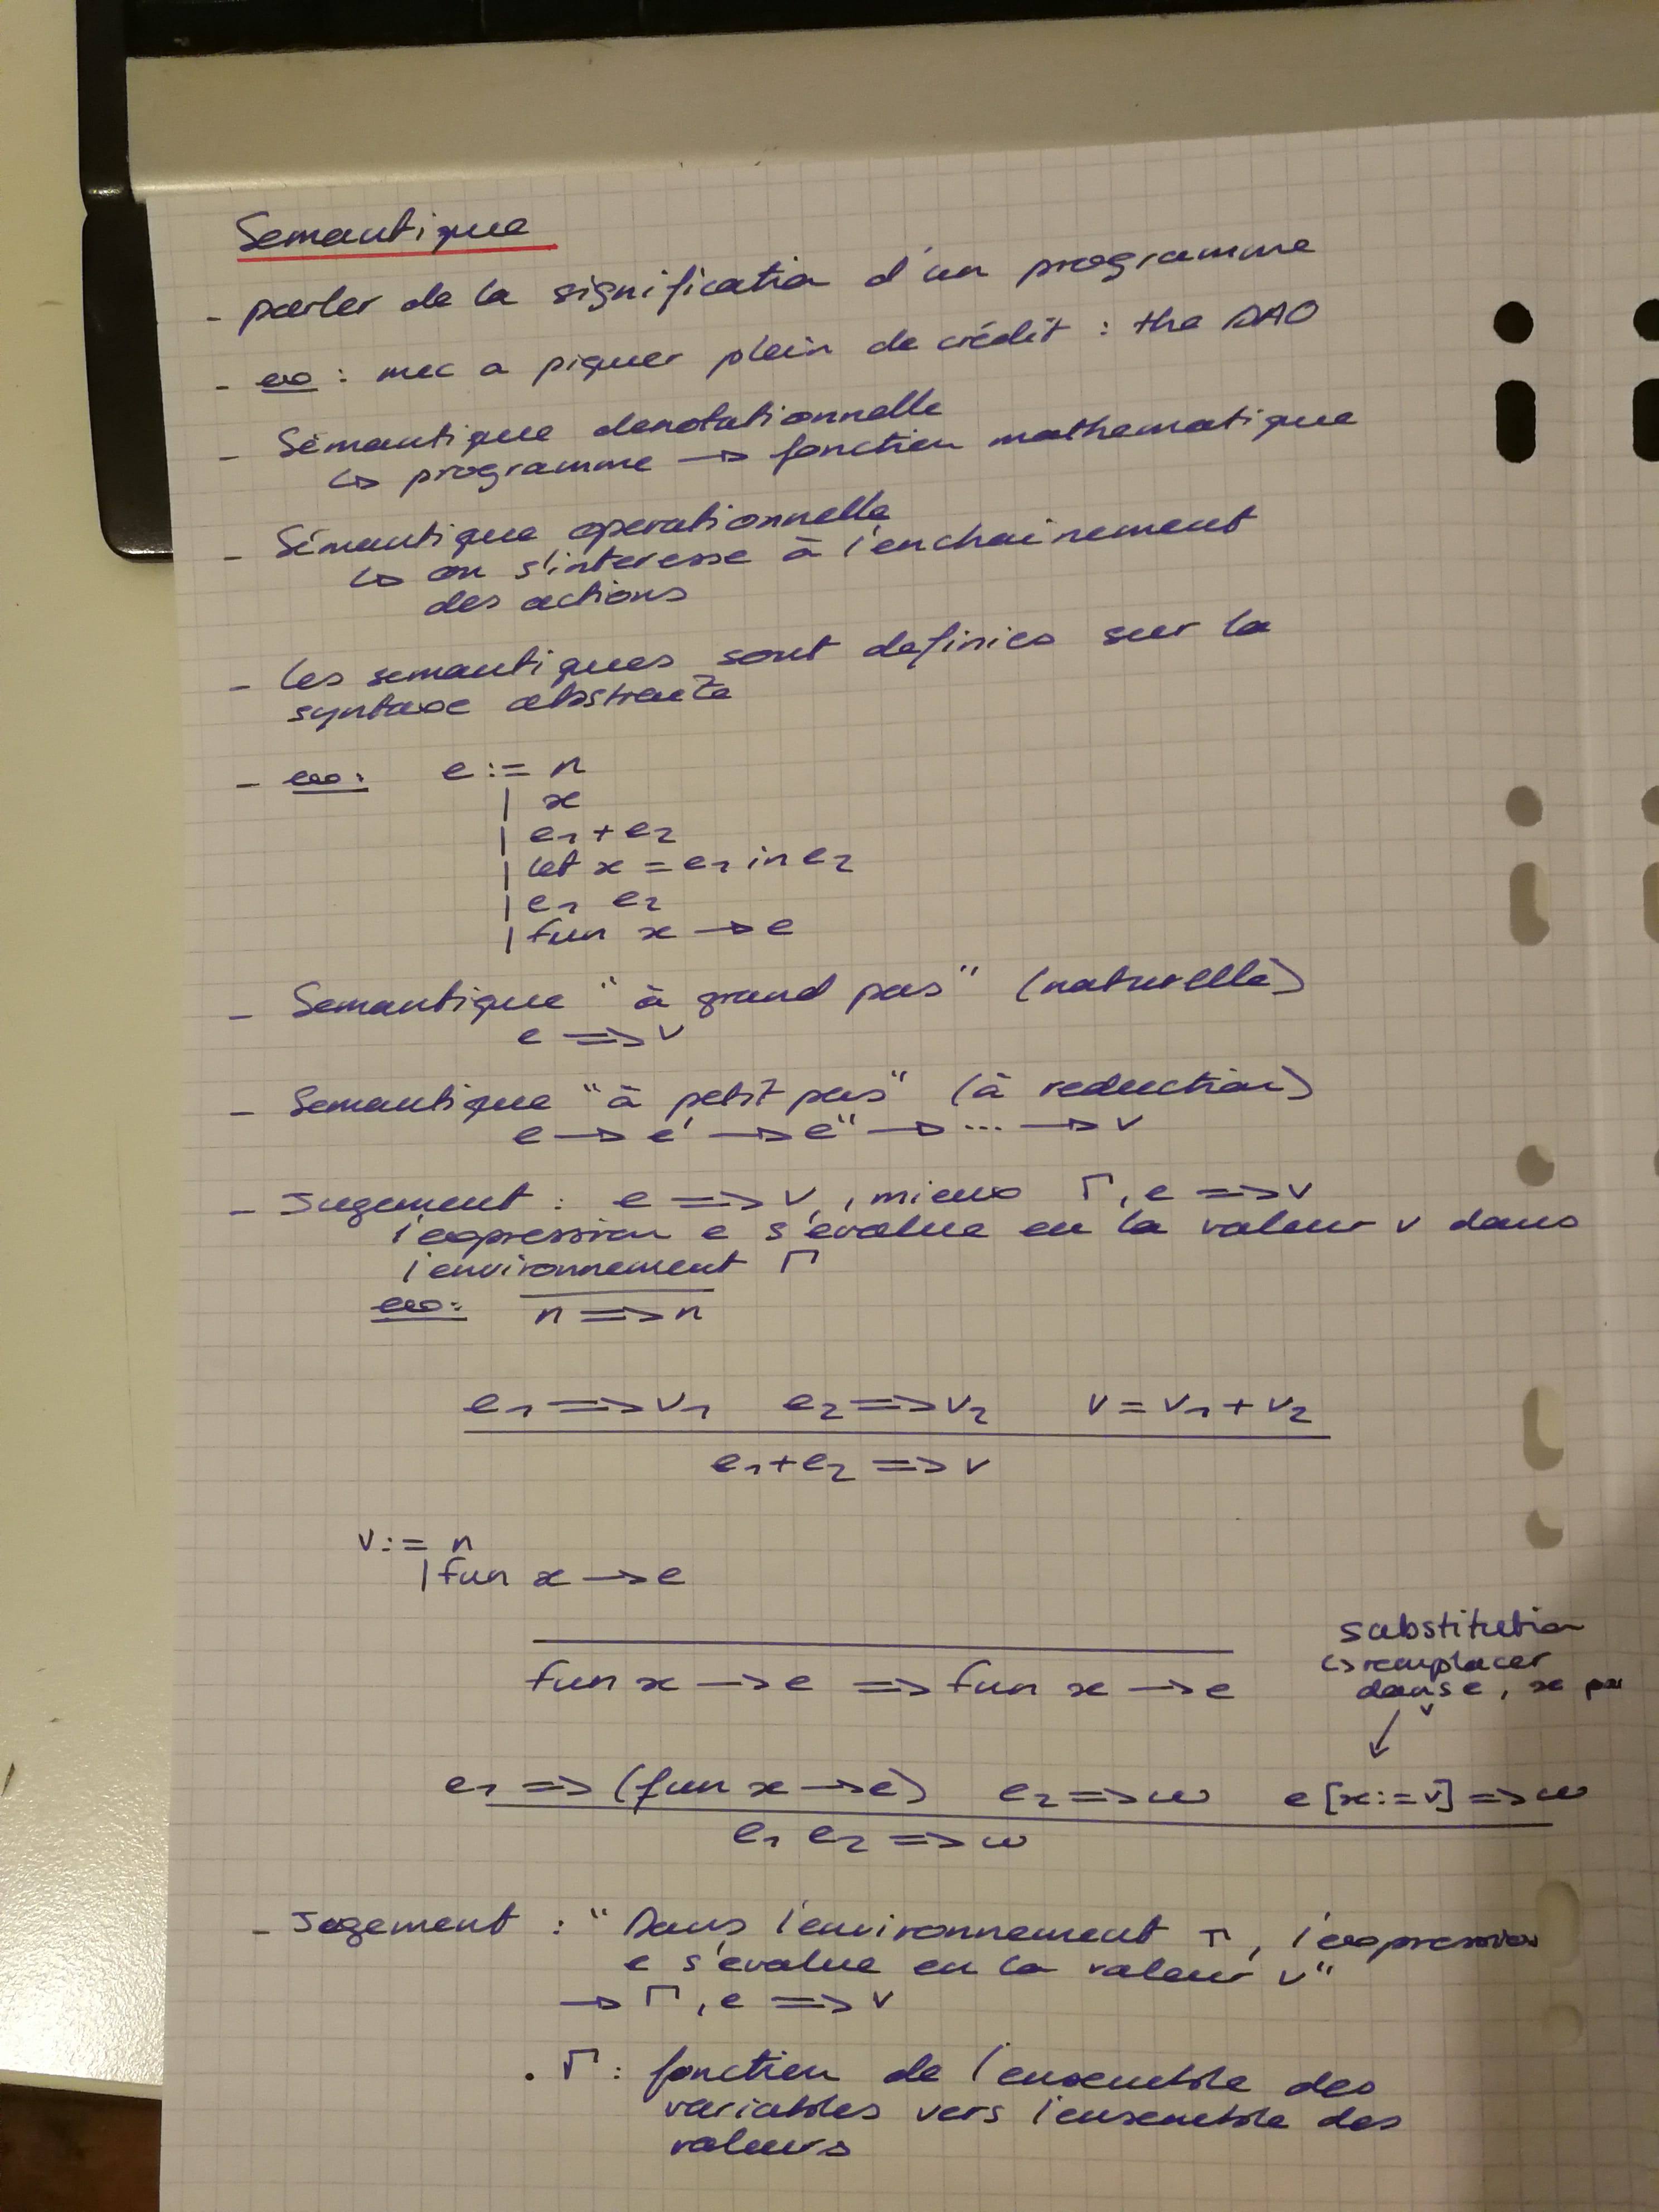 Semantique
- parler de la signification d'un programme
- ex : mec a piquer plein de crédit : the DAO
- Sémantique denotationnelle
↳ programme → fonction mathematique
- Sémantique operationnelle
↳ on s'interesse à l'enchainement
des actions
- les semantiques sont definies sur la
syntaxe abstraite
- ex: e := n
| x
| e1 + e2
| let x = e1 in e2
| e1 e2
| fun x → e
- Semantique "à grand pas" (naturelle)
e ⇒ v
- Semantique "à petit pas" (à reduction)
e → e' → e'' → ... → v
- Jugement : e ⇒ v, mieux Γ, e ⇒ v
l'expression e s'evalue en la valeur v dans
l'environnement Γ
ex: n ⇒ n
e1 ⇒ v1 e2 ⇒ v2 v = v1 + v2
e1 + e2 ⇒ v
v := n
| fun x → e
substitution
↳ remplacer
dans e, x par
v
fun x → e ⇒ fun x → e
e1 ⇒ (fun x → e) e2 ⇒ w e[x:=v] ⇒ w
e1 e2 ⇒ w
- Jugement : "Dans l'environnement Γ, l'expression
e s'evalue en la valeur v"
→ Γ, e ⇒ v
. Γ : fonction de l'ensemble des
variables vers l'ensemble des
valeurs